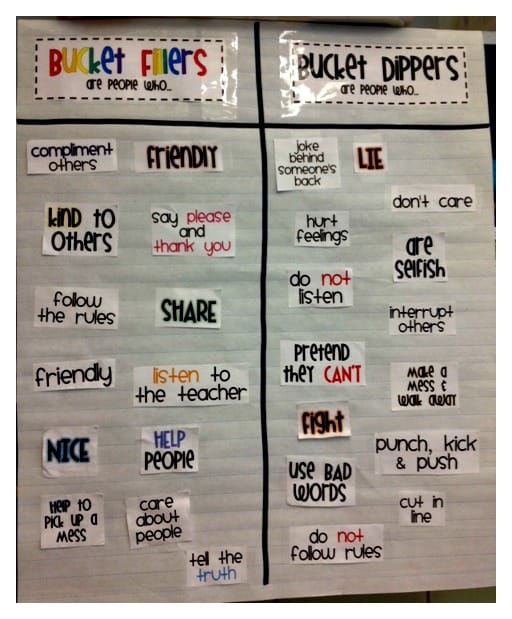 BUCKET FILLERS
are PEOPLE WHO...
compliment
others
FRIENDLY
KIND TO
OTHERS
say please
and
thank you
follow
the rules
SHARE
friendly
listen to
the teacher
NICE
HELP
PEOPLE
HELP TO
PICK UP A
MESS
care
about
people
tell the
truth
BUCKET DIPPERS
are PEOPLE WHO...
joke
behind
someone's
back
LIE
don't care
hurt
feelings
are
SELFISH
do not
listen
interrupt
others
PRETEND
THEY CAN'T
MAKE A
MESS &
WALK AWAY
fight
punch, kick
& push
USE BAD
WORDS
cut in
line
do not
follow rules